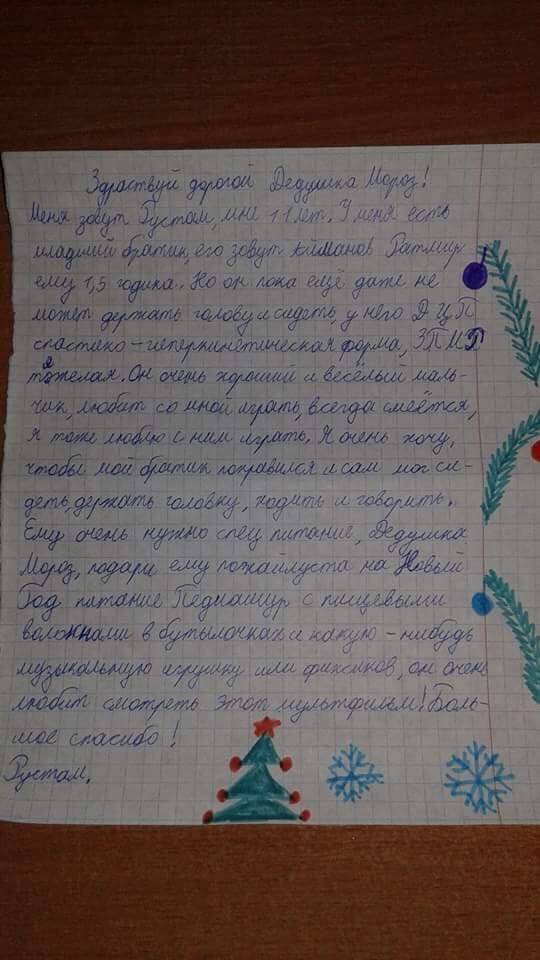 Здраствуй дорогой Дедушка Мороз!
Меня зовут Рустам, мне 11 лет. У меня есть
младший братик, его зовут Айманов Ратмир
ему 1,5 годика. Но он пока ещё даже не
может держать голову и сидеть, у него ДЦП
спастико-гиперкинетическая форма, ЗПМР
тяжелая. Он очень хороший и весёлый маль-
чик, любит со мной играть, всегда смеётся,
я тоже люблю с ним играть. Я очень хочу,
чтобы мой братик поправился и сам мог си-
деть, держать головку, ходить и говорить.
Ему очень нужно спец питание, Дедушка
Мороз, подари ему пожайлуста на Новый
Год питание Педиашур с пищевыми
волокнами в бутылочках и какую-нибудь
музыкальную игрушку или фиксиков, он очень
любит смотреть этот мультфильм! Боль-
шое спасибо!
Рустам.